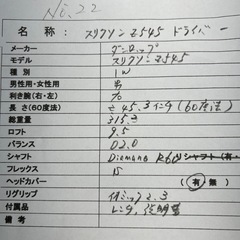 No.22
名 称： スリクソン Z545 ドライバー
メーカー ダンロップ
モデル スリクソン Z545
種 別 1W
男性用・女性用 男
利き腕(右・左) 右
長 さ(60度法) 45.3インチ(60度法)
総重量 315.3
ロフト 9.5
バランス D2.0
シャフト Diamana シャフト(有・
フレックス S
ヘッドカバー 有・無
リグリップ
付属品 レンチ、説明書
備 考